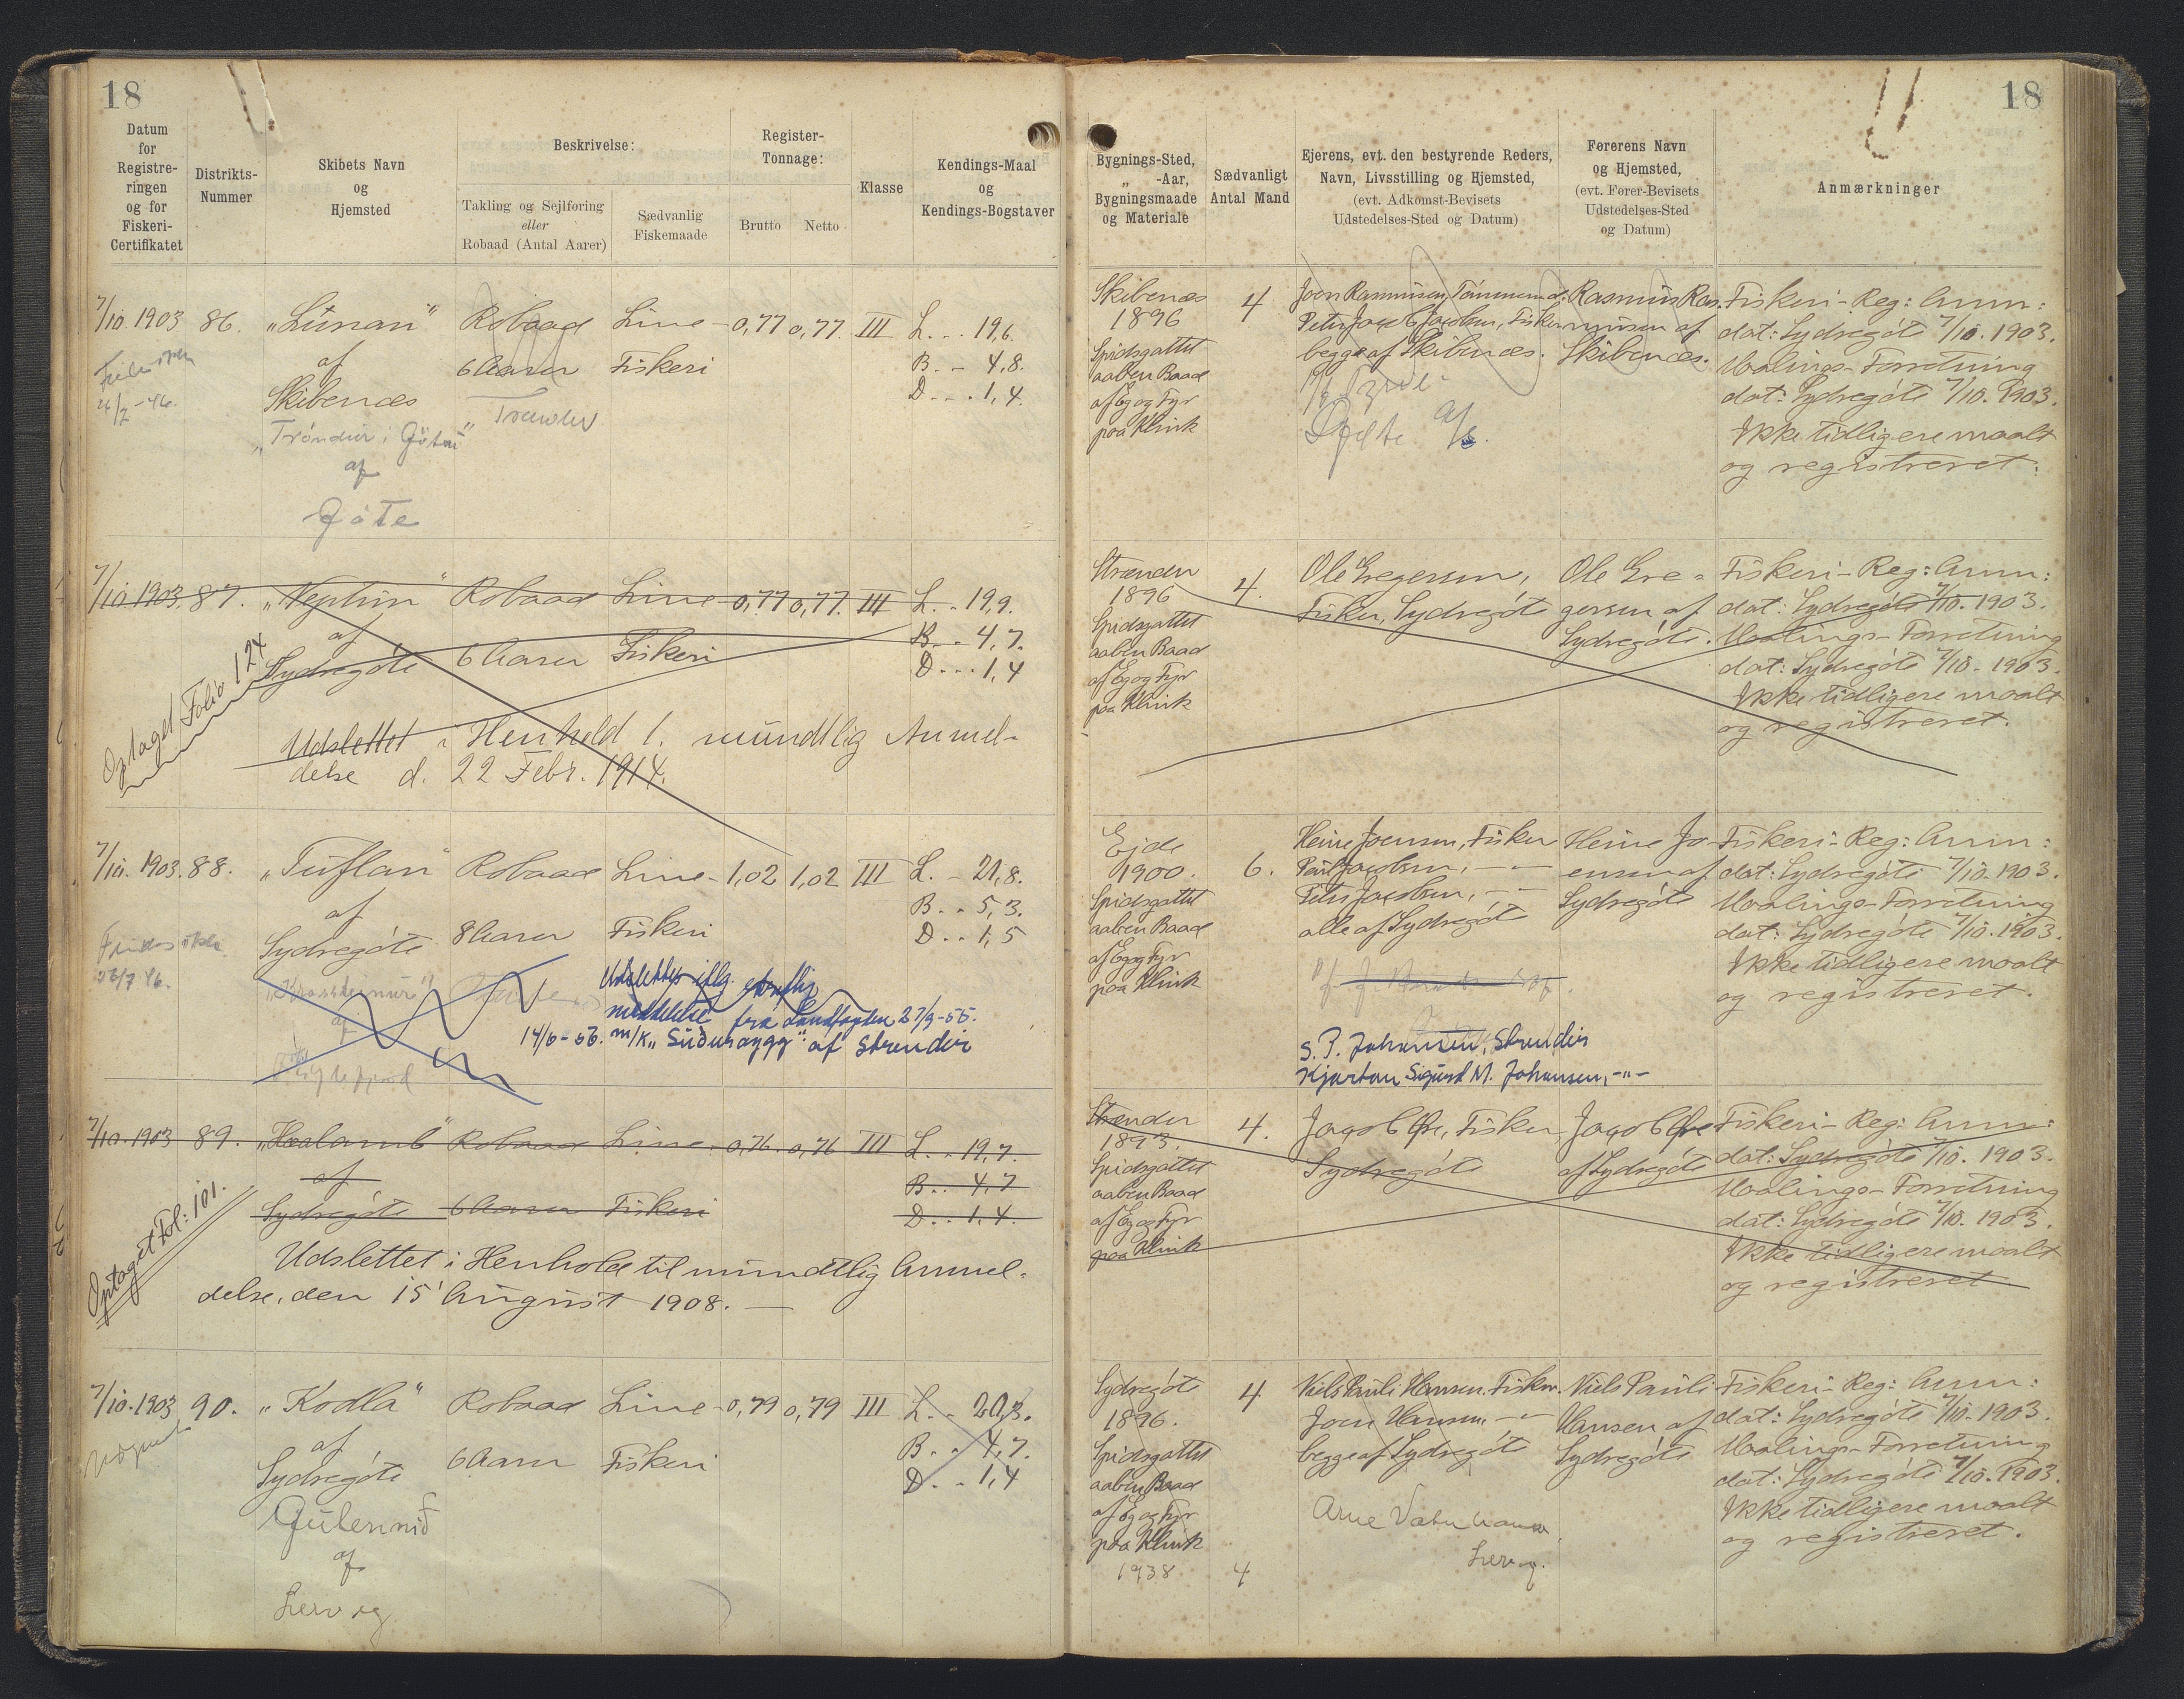 18
Datum
for
Registre-
ringen
og for
Fiskeri-
Certifikatet
Distrikts-
Nummer
Skibets Navn
og
Hjemsted
Beskrivelse:
Takling og Sejlføring
eller
Robaad (Antal Aarer)
Sædvanlig
Fiskemaade
Register-
Tonnage:
Brutto Netto
Klasse
Kendings-Maal
og
Kendings-Bogstaver
7/10. 1903 86. „Lúnan“ Robaad Line- 0,77 0,77. III L. .. 19,6.
af 6 Aarer Fiskeri B. .. 4,8.
Skibenæs D. .. 1,4.
26/7 -46.
„Tróndur i Gøtu“
af
Gøte
7/10. 1903. 87. „Neptun“ Robaad Line- 0,77 0,77. III L. .. 19,9.
af B. .. 4,7.
Sydregøte 6 Aarer Fiskeri D. .. 1,4
Optaget Folio 124
Udslettet i Henhold t. mundtlig Anmel-
delse d. 22 Febr. 1914.
7/10. 1903. 88. „Tuflan“ Robaad Line- 1,02 1,02 III L. .. 21,8.
af B. .. 5,3.
Sydregøte 8 Aarer Fiskeri D. .. 1,5
26/7 46.
af
Udslettes iflg. skriftlig
meddelelse fra Landfogden 27/9-55.
14/6-56. m/k „Suduroygg“ af Strendir
7/10. 1903 89. „Havlamb“ Robaad Line- 0,76. 0,76 III L. .. 19,7.
af B. .. 4,7
Sydregøte 6 Aarer Fiskeri D. .. 1,4.
Optaget Fol: 101.
Udslettet i Henhold til mundtlig Anmel-
delse, den 15 August 1908. —
7/10. 1903 90. „Kodla“ Robaad Line- 0,79 0,79 III L. .. 20,3.
af 6 Aarer Fiskeri B. .. 4,7.
Sydregøte D. .. 1,4
af
Lervig
18
Bygnings-Sted,
„ -Aar,
Bygningsmaade
og Materiale
Sædvanligt
Antal Mand
Ejerens, evt. den bestyrende Reders,
Navn, Livsstilling og Hjemsted,
(evt. Adkomst-Bevisets
Udstedelses-Sted og Datum)
Førerens Navn
og Hjemsted,
(evt. Fører-Bevisets
Udstedelses-Sted
og Datum)
Anmærkninger
Skibenæs
1896
Spidsgattet
aaben Baad
af Eg og Fyr
paa Klink
4
Joen Rasmussen,
Peter Jacob Jacobsen, Fisker
begge af Skibenæs.
Gøte A/S.
Rasmus Ras-
mussen af
Skibenæs.
Fiskeri-Reg: Anm:
dat: Sydregøte 7/10. 1903.
Maalings-Forretning
dat: Sydregøte 7/10. 1903.
Ikke tidligere maalt
og registreret.
Strænder
1896
Spidsgattet
aaben Baad
af Eg og Fyr
paa Klink
4.
Ole Gregersen,
Fisker, Sydregøte
Ole Gre-
gersen af
Sydregøte.
Fiskeri-Reg: Anm:
dat: Sydregøte 7/10. 1903.
Maalings-Forretning
dat: Sydregøte 7/10. 1903.
Ikke tidligere maalt
og registreret.
Ejde
1900.
Spidsgattet
aaben Baad
af Eg og Fyr
paa Klink
6.
Heine Joensen, Fisker
Paul Jacobsen, — „ —
Peter Jacobsen, — „ —
alle af Sydregøte
S. P. Johansen, Strendir
Kjartan Sigurd M. Johansen, -„-
Heine Jo-
ensen af
Sydregøte
Fiskeri-Reg: Anm:
dat: Sydregøte 7/10. 1903.
Maalings-Forretning
dat: Sydregøte 7/10. 1903.
Ikke tidligere maalt
og registreret.
Strænder
1893.
Spidsgattet
aaben Baad
af Eg og Fyr
paa Klink
4.
Jacob Øre, Fisker,
Sydregøte
Jacob Øre
af Sydregøte
Fiskeri-Reg: Anm:
dat: Sydregøte 7/10. 1903.
Maalings-Forretning
dat: Sydregøte 7/10. 1903.
Ikke tidligere maalt
og registreret
Sydregøte
1896.
Spidsgattet
aaben Baad
af Eg og Fyr
paa Klink
1938
4
4
Niels Pauli Hansen, Fisker.
Joen Hansen, — „ —
begge af Sydregøte
Arne
Lervig.
Niels Pauli
Hansen af
Sydregøte
Fiskeri-Reg: Anm:
dat: Sydregøte 7/10. 1903.
Maalings-Forretning
dat: Sydregøte 7/10. 1903.
Ikke tidligere maalt
og registreret.